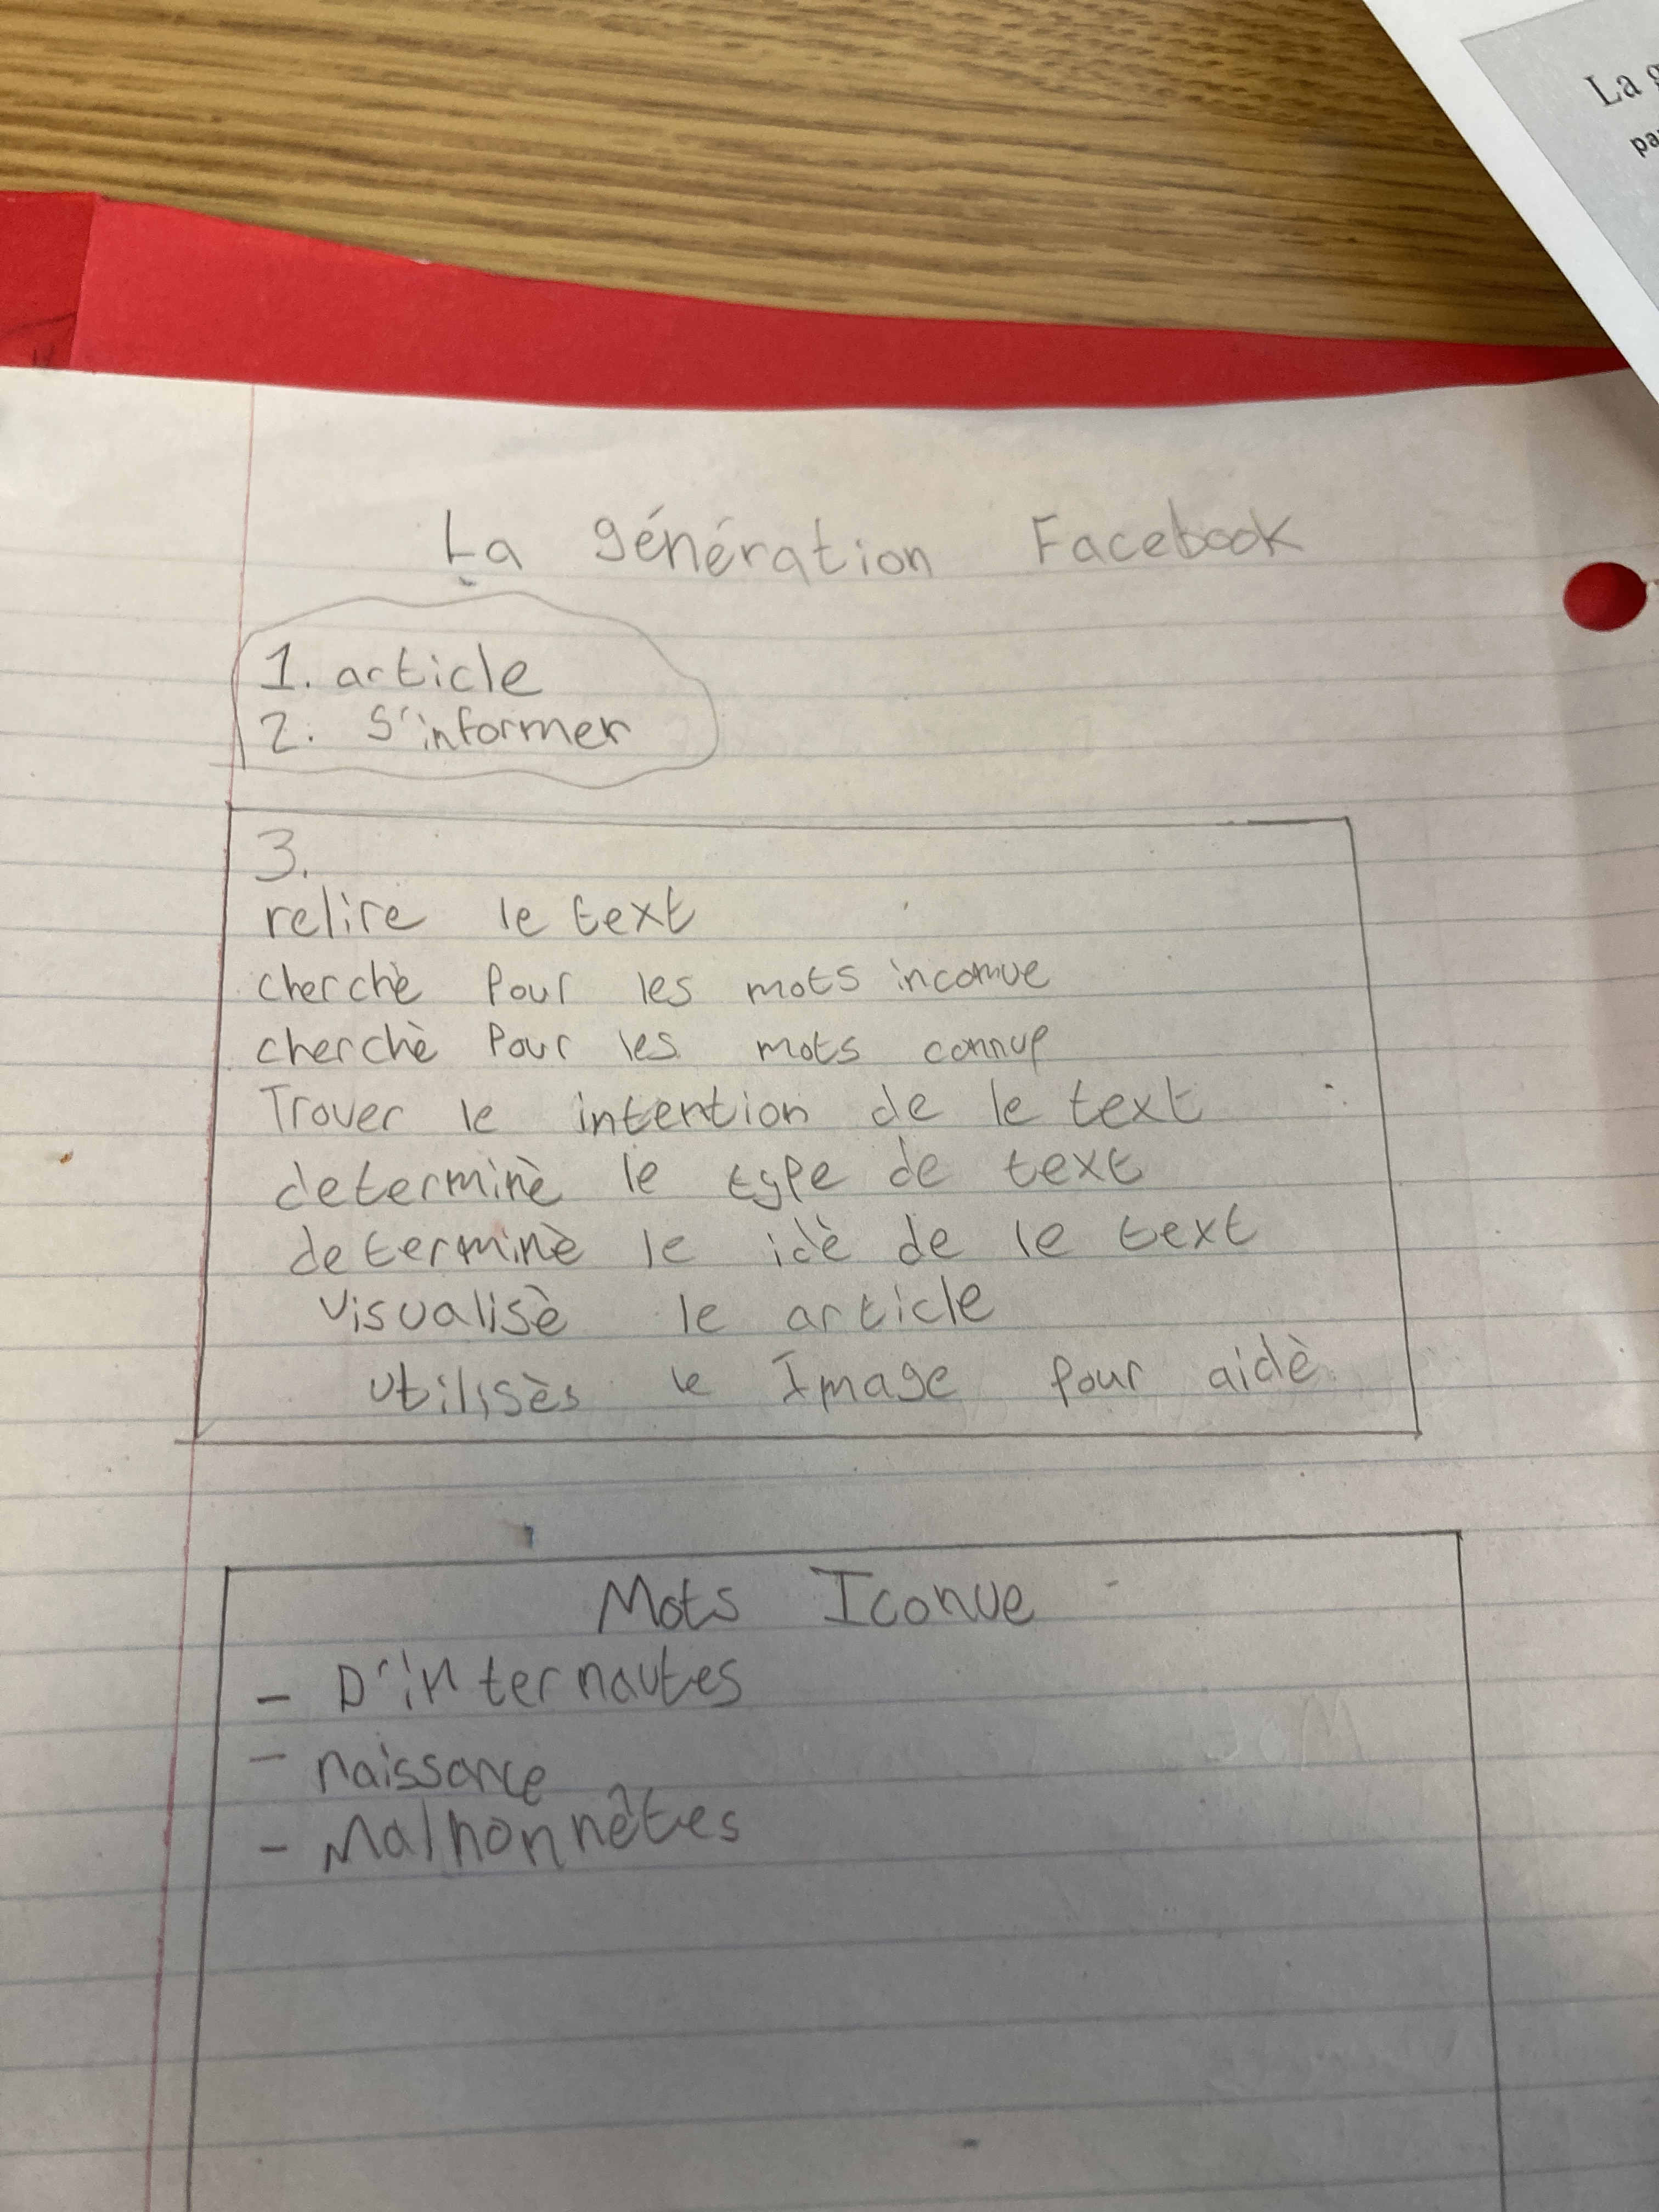 La g
pa
La génération Facebook
1. article
2. S'informer
3.
relire le text
cherchè pour les mots inconnue
cherchè Pour les mots connue
Trover le intention de le text
determinè le type de text
determinè le idè de le text
visualisè le article
utilisès le Image pour aidè
Mots Iconue
- D'internautes
- naissance
- Malhonnêtes